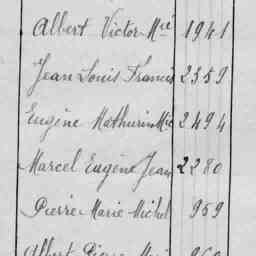 Albert Victor Mcé 1941
Jean Louis Francis 2359
Eugène Mathurin Mie 2494
Marcel Eugène Jean 2280
Pierre Marie Michel 959
Albert Pierre